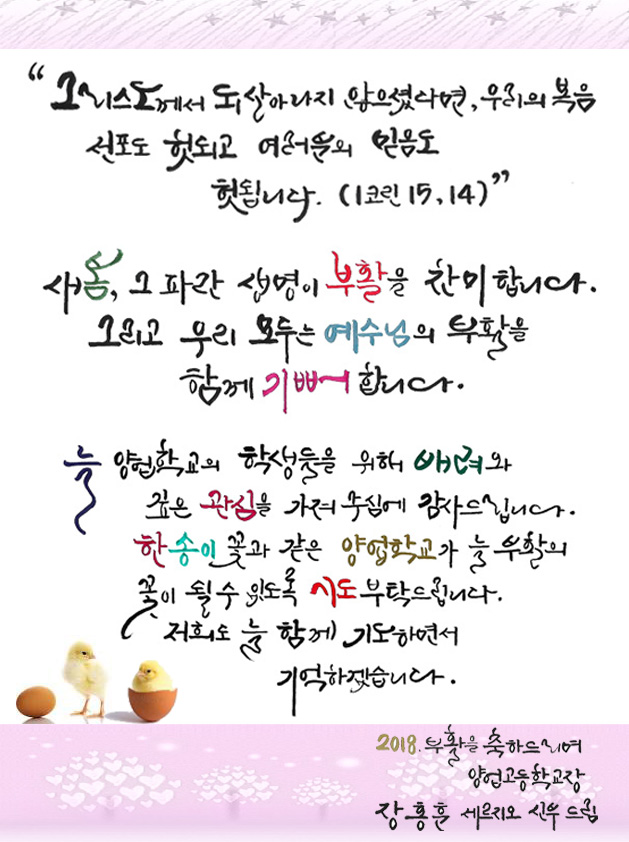 “그리스도께서 되살아나지 않으셨다면, 우리의 복음
선포도 헛되고 여러분의 믿음도
헛됩니다. (1코린 15,14)”
새봄, 그 파란 생명이 부활을 찬미합니다.
그리고 우리 모두는 예수님의 부활을
함께 기뻐 합니다.
늘 양업학교의 학생들을 위해 배려와
깊은 관심을 가져 주심에 감사드립니다.
한 송이 꽃과 같은 양업학교가 늘 부활의
꽃이 될 수 있도록 기도 부탁드립니다.
저희도 늘 함께 기도하면서
기억하겠습니다.
2018. 부활을 축하드리며
양업고등학교장
장홍훈 세르지오 신부 드림